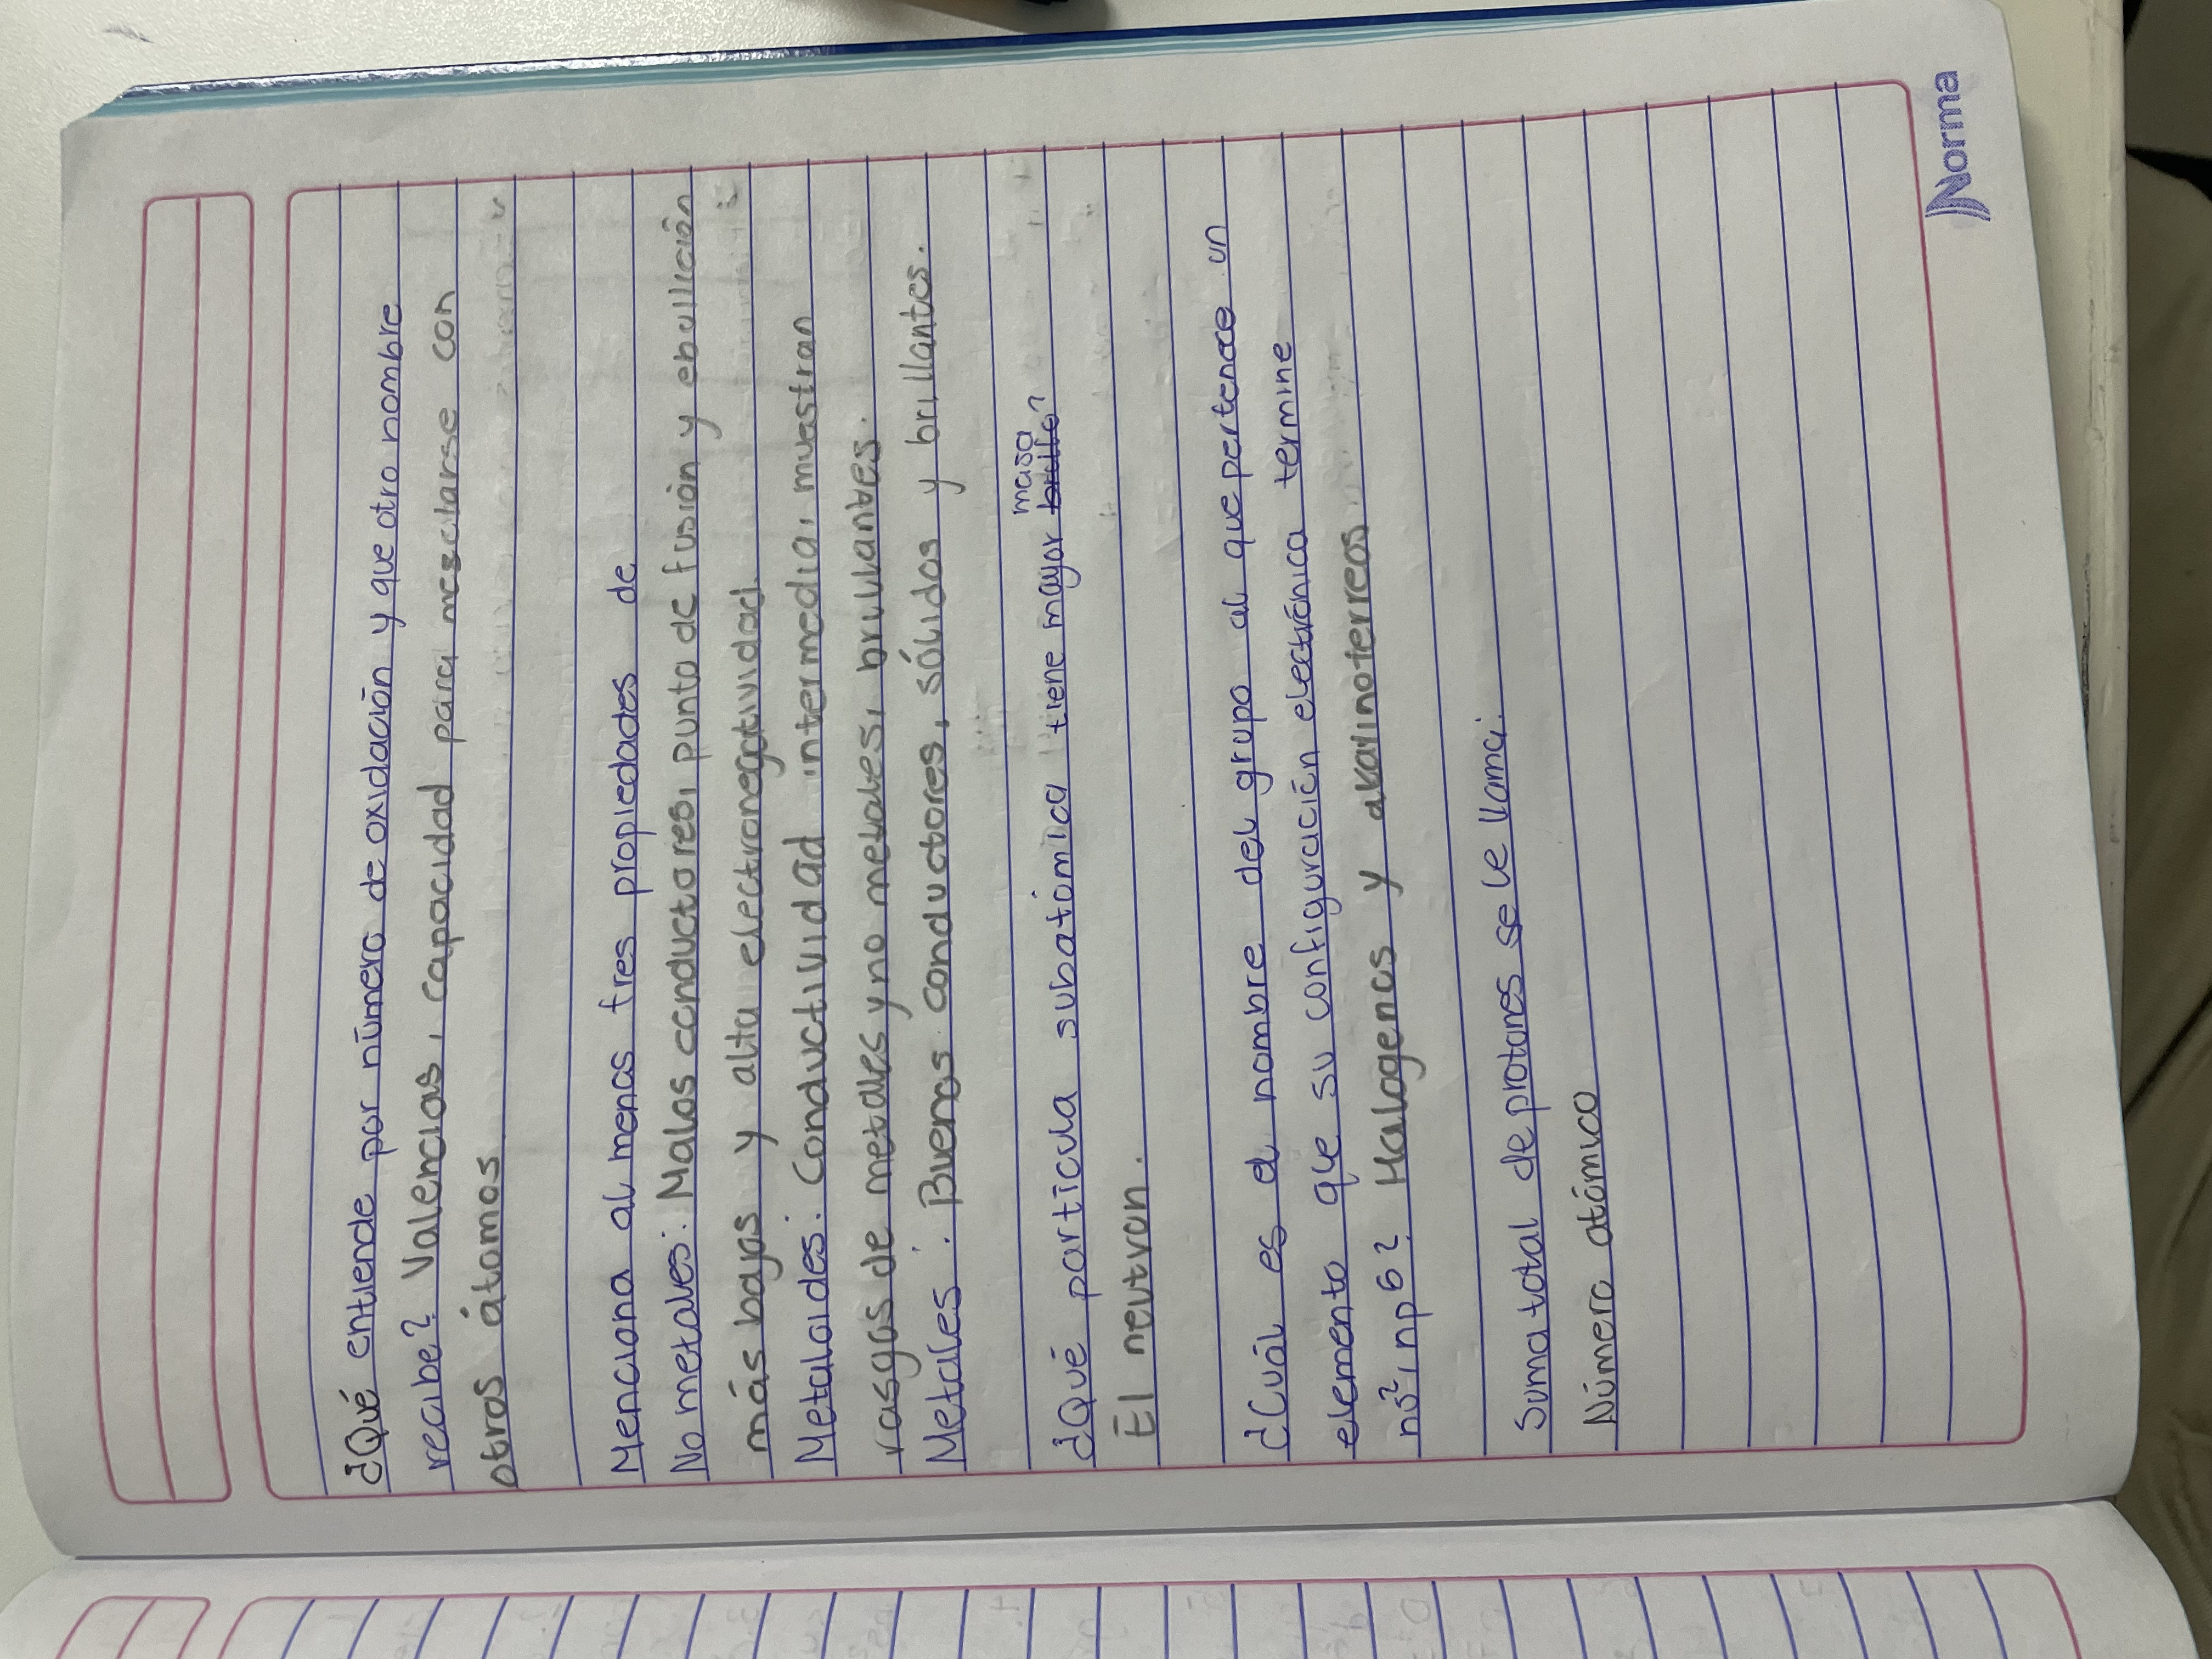 ¿Qué entiende por número de oxidación y que otro nombre
recibe? Valencias, capacidad para mezclarse con
otros átomos
Menciona al menos tres propiedades de
No metales: Malos conductores, punto de fusión y ebullición
más bajos y alta electronegatividad.
Metaloides: Conductividad intermedia, muestran
rasgos de metales y no metales, brillantes.
Metales: Buenos conductores, sólidos y brillantes.
masa
¿Qué partícula subatómica tiene mayor brillo?
El neutron.
¿Cuál es el nombre del grupo al que pertenece un
elemento que su configuración electrónica termine
ns², np6? Halogenos y alkalinoterreos
Suma total de protones se le llama:
Número atómico
Norma